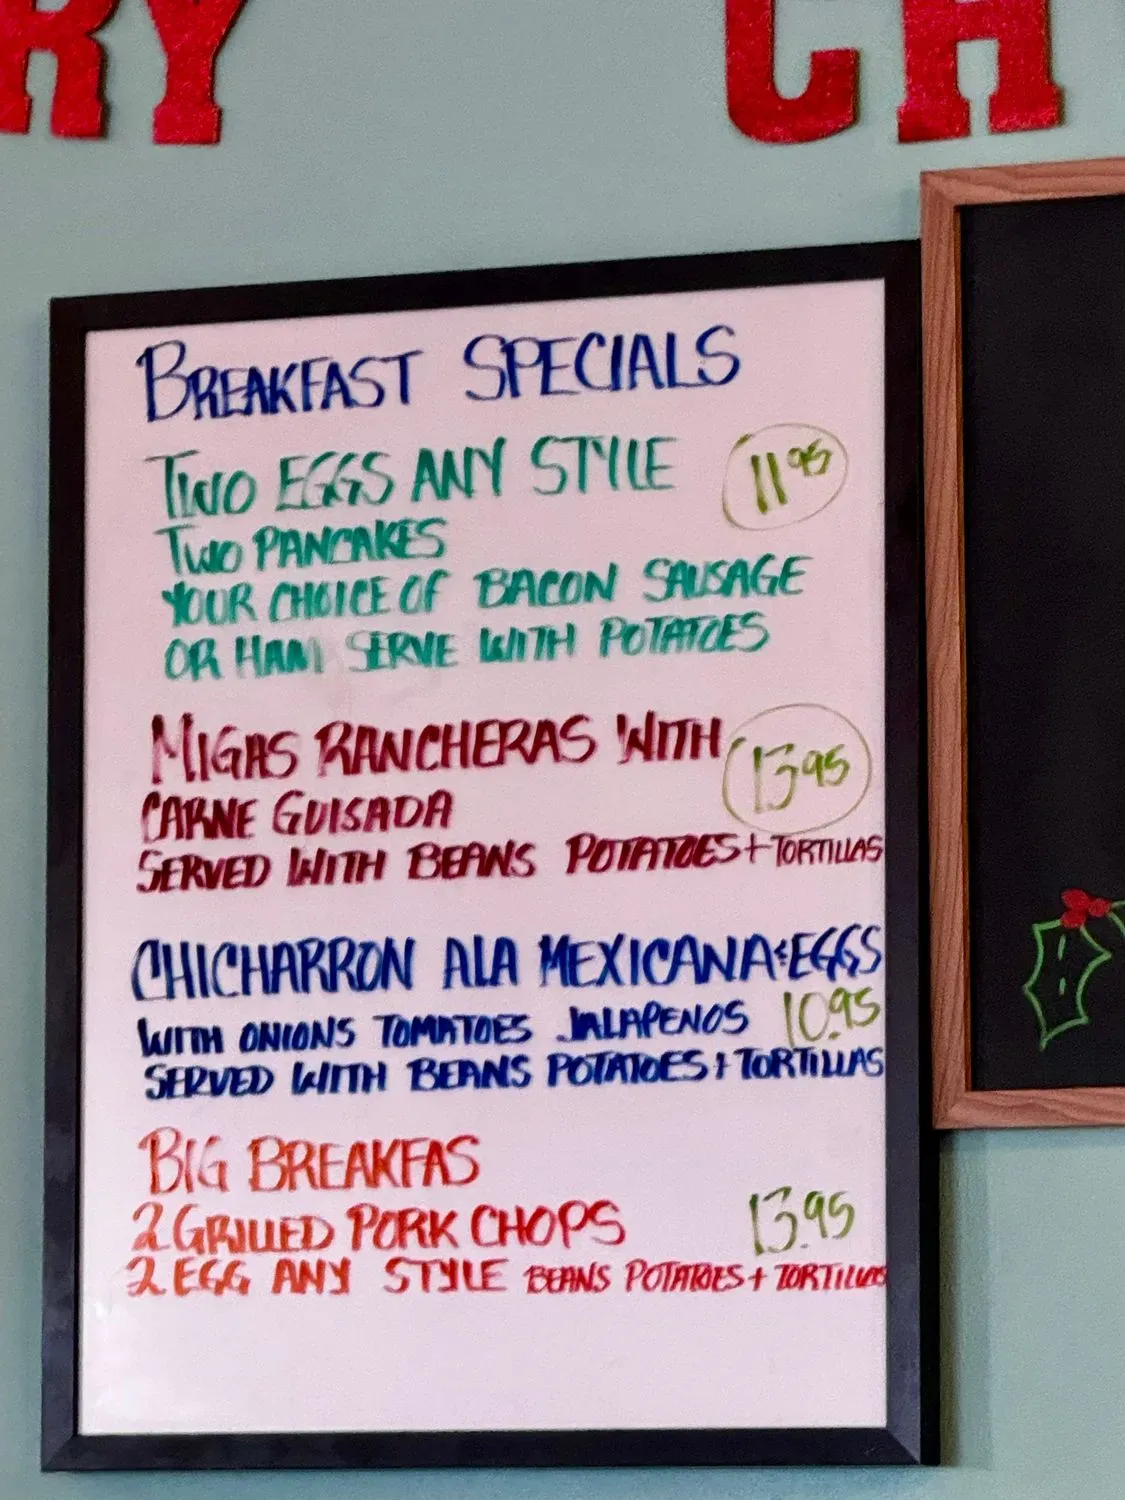 RY CH
BREAKFAST SPECIALS
TWO EGGS ANY STYLE 11.95
TWO PANCAKES
YOUR CHOICE OF BACON SAUSAGE
OR HAM SERVE WITH POTATOES
MIGAS RANCHERAS WITH 13.95
CARNE GUISADA
SERVED WITH BEANS POTATOES + TORTILLAS
CHICHARRON ALA MEXICANA & EGGS
WITH ONIONS TOMATOES JALAPENOS 10.95
SERVED WITH BEANS POTATOES + TORTILLAS
BIG BREAKFAS
2 GRILLED PORK CHOPS 13.95
2 EGG ANY STYLE BEANS POTATOES + TORTILLAS